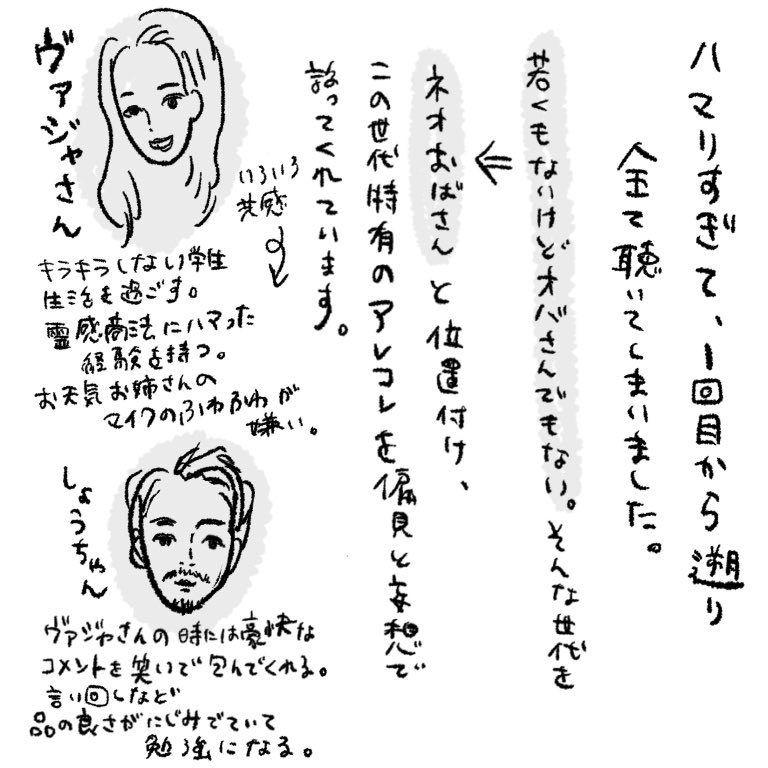 ハマりすぎて、1回目から遡り
全て聴いてしまいました。
若くもないけどオバさんでもない。そんな世代を
ネオおばさんと位置付け、
この世代特有のアレコレを偏見と妄想で
語ってくれています。
ヴァジャさん
いろいろ
共感
キラキラしない学生
生活を過ごす。
霊感商法にハマった
経験を持つ。
お天気お姉さんの
マイクのふわふわが
嫌い。
しょうちゃん
ヴァジャさんの時には豪快な
コメントを笑いで包んでくれる。
言い回しなど
品の良さがにじみでていて
勉強になる。